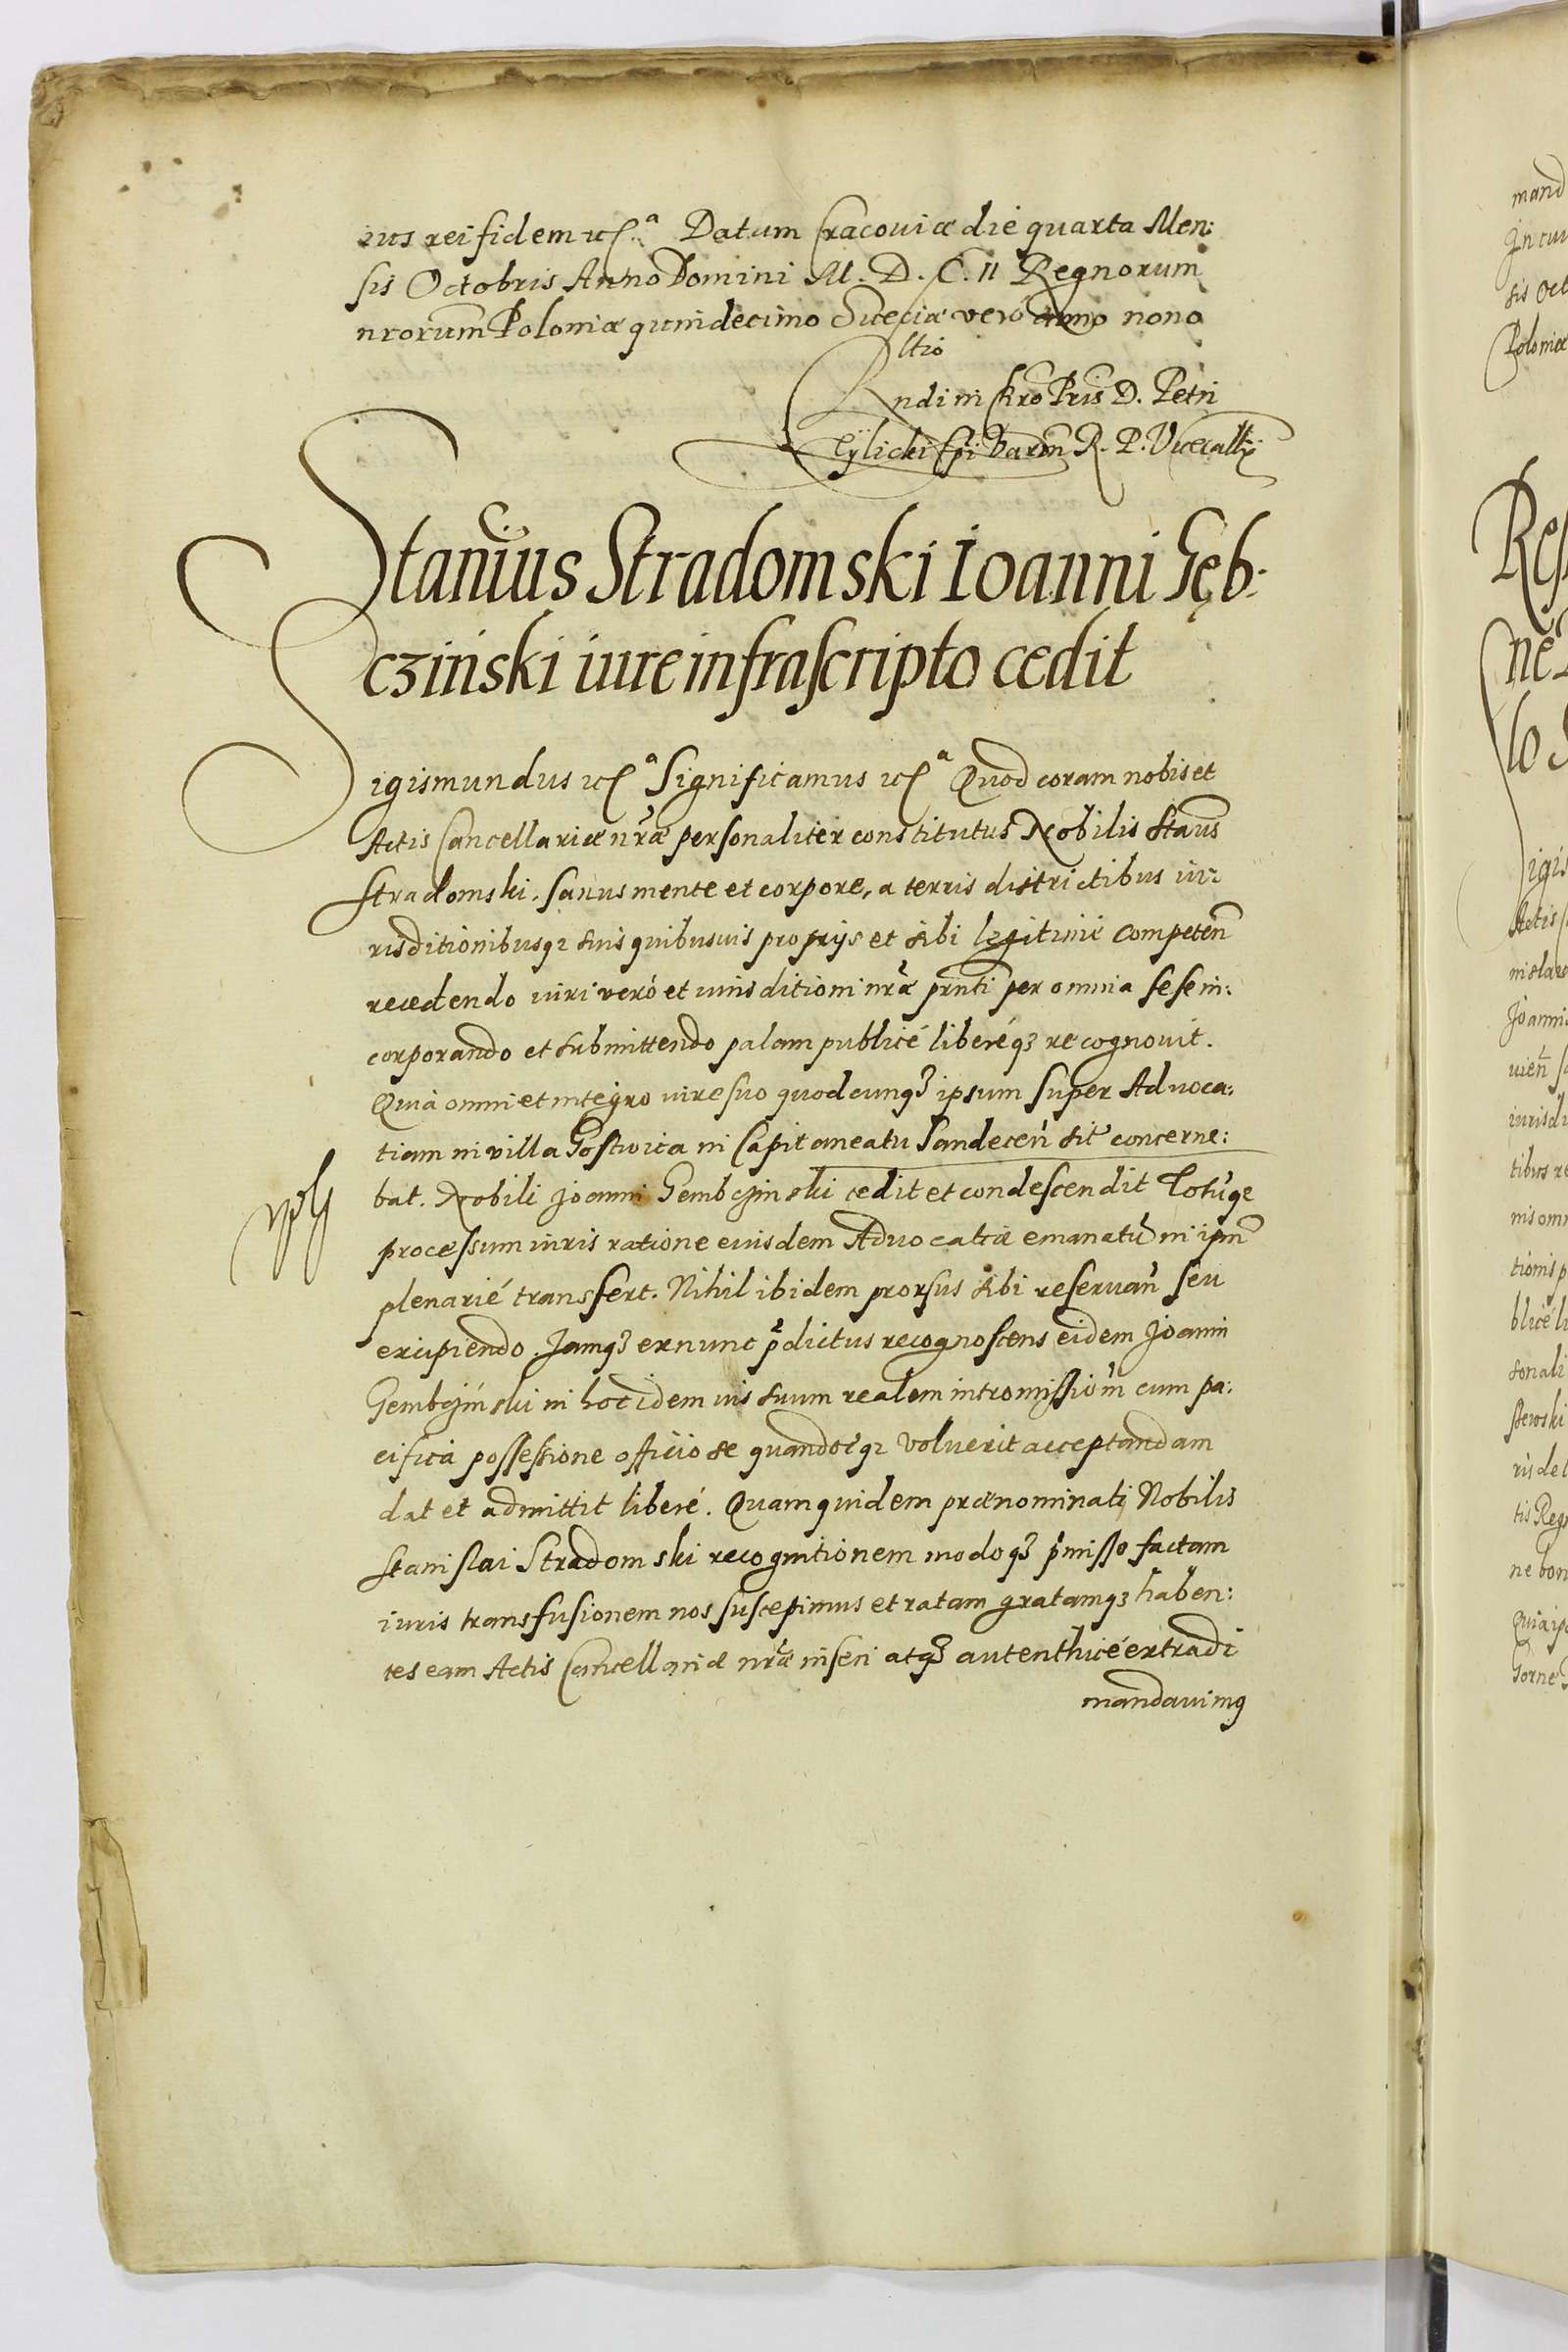 ius rei fidem etc.ª Datum Cracouiæ die quarta Men:
sis Octobris Anno Domini M. D. C. II Regnorum
nrorum Poloniæ quindecimo Sueciæ veró anno nono
Rltio
Rndi in Chro Pris D. Petri
Tylicki Epi Varm R. P. Vicecallrij
Stanius Stradomski Ioanni Gęb:
cziński iure infrascripto cedit
Sigismundus etc ª Significamus etc ª Quod coram nobis et
Actis Cancellariæ nræ personaliter constitutus Nobilis Staus
Stradomski. sanus mente et corpore, a terris districtibus iu:
risditionibusq3 suis quibusuis proprijs et sibi legitimé competen
recedendo iuri veró et iurisditioni nræ prnti per omnia sese in:
corporando et submittendo palam publicé liberéq3 recognouit.
Quia omni et integro iure suo quodcunq3 ipsum super Aduoca:
tiam in villa Gostwica in Capitaneatu Sandecen sit concerne:
bat. Nobili Joanni Gembczinski cedit et condescendit Totuqe
processum iuris ratione eiusdem Aduocatiæ emanatu in ipm
plenarié transfert. Nihil ibidem prorsus sibi reseruan seu
excipiendo. Jamq3 ex nunc pdictus recognoscens eidem Joanni
Gembczinski in hoc idem ius suum realem intromissiom cum pa:
cifica possessione officiose quandocq3 voluerit acceptandam
dat et admittit liberé. Quamquidem prænominati Nobilis
Stanislai Stradomski recognitionem modoq3 pmisso factam
iuris transfusionem nos suscepimus et ratam gratamq3 haben:
tes eam Actis Cancellariæ nræ inseri atq3 autenthicé extradi
mandauimq
mand
In cui
sis Oct
Poloniæ
Res
ne
lo
Sigis
Actis
nislao
Joanni
uien
iurisdi
tibus re
nis omn
tionis p
blicé li
sonali
ris de
tis Reg
ne bon
Quia ip
Gorne